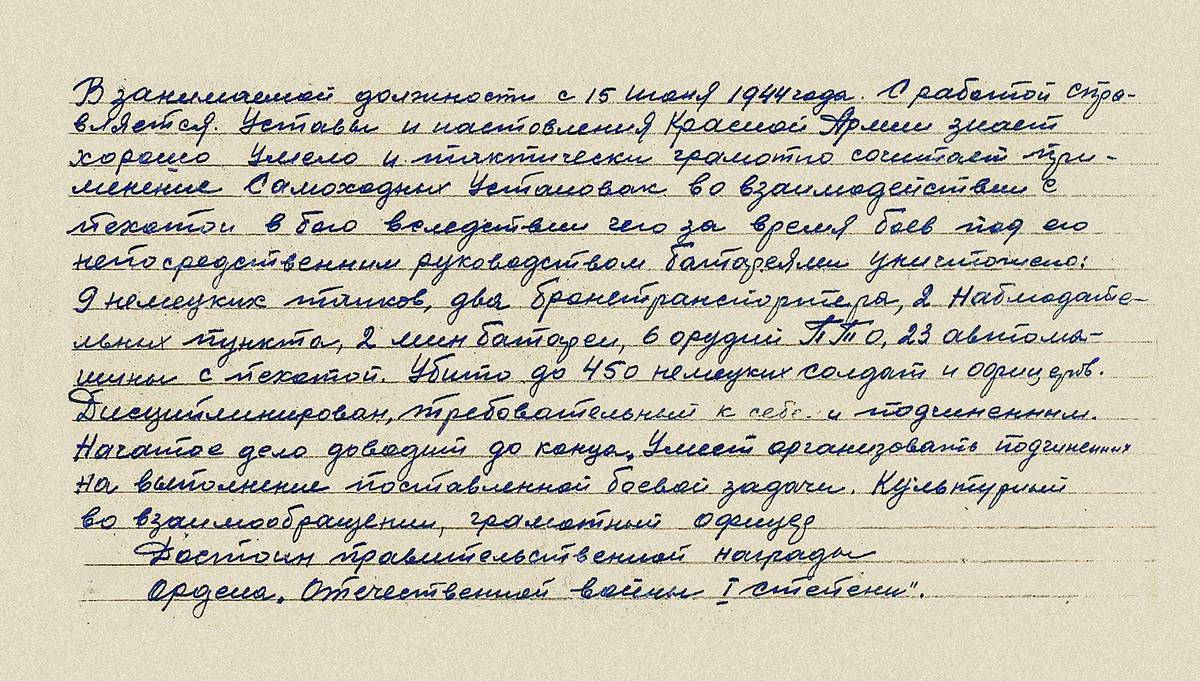 В занимаемой должности с 15 июня 1944 года. С работой спра-
вляется. Уставы и наставления Красной Армии знает
хорошо Умело и тактически грамотно сочитает при-
менение Самоходных Установок во взаимодействии с
пехотой в бою вследствии чего за время боев под его
непосредственным руководством батареями уничтожено:
9 немецких танков, два бронетранспортера, 2 Наблюдате-
льных пункта, 2 мин батареи, 6 орудий ПТО, 23 автома-
шины с пехотой. Убито до 450 немецких солдат и офицеров.
Дисциплинирован, требовательный к себе и подчиненным.
Начатое дело доводит до конца, Умеет организовать подчиненных
на выполнение поставленной боевой задачи. Культурный
во взаимообращении, грамотный офицер
Достоин правительственной награды
Ордена „Отечественной войны I степени".